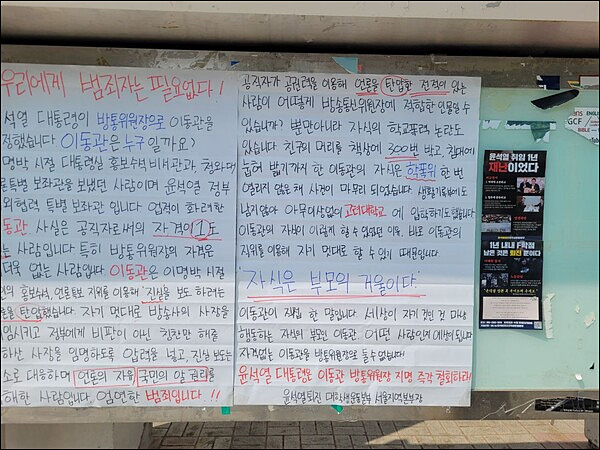 우리에게 범죄자는 필요없다!
석열 대통령이 방통위원장으로 이동관을
정했습니다 이동관은 누구일까요?
명박 시절 대통령실 홍보수석비서관과, 청와대
특별 보좌관을 보냈던 사람이며 윤석열 정부
외협력 특별 보좌관 입니다 업적이 화려한
동관 사실은 공직자로서의 자격이 1도
는 사람입니다 특히 방통위원장의 자격은
더욱 없는 사람입니다 이동관은 이명박 시절
홍보수석, 언론특보 지위를 이용해 "진실을 보도하려는
탄압했습니다 자기 멋대로 방송사의 사장을
임시키고 정부에게 비판이 아닌 칭찬만 해줄
하산 사장을 임명하도록 압력을 넣고, 진실 보도는
소로 대응하며 언론의 자유 국민의 알 권리를
해한 사람입니다. 엄연한 범죄입니다!!
공직자가 공권력을 이용해 언론을 탄압한 전적이 있는
사람이 어떻게 방송통신위원장에 적합한 인물일 수
있습니까? 뿐만아니라 자식의 학교폭력 논란도
있습니다 친구의 머리를 책상에 300번 박고, 침대에
눕혀 밟기까지 한 이동관의 자식은 학폭위 한 번
열리지 않은 채 사건이 마무리 되었습니다. 생활기록부에도
남지않아 아무이상없이 고려대학교 에 입학하기도했습니다
이동관의 자식이 이렇게 할 수 있었던 이유, 바로 이동관의
지위를 이용해 자기 멋대로 할 수 있기 때문입니다
'자식은 부모의 거울이다'
이동관이 직접 한 말입니다. 세상이 자기 것인 것 마냥
행동하는 자식의 부모인 이동관. 어떤 사람인지 예상이 됩니다
자격없는 이동관을 방통위원장으로 둘 수 없습니다!
윤석열 대통령은 이동관 방통위원장 지명 즉각 철회하라!
윤석열퇴진 대학생운동본부 서울지역본부장
윤석열 취임 1년
재난이었다
1년 내내 F학점
남은 것은 퇴진 뿐이다
GCF
BIBLE